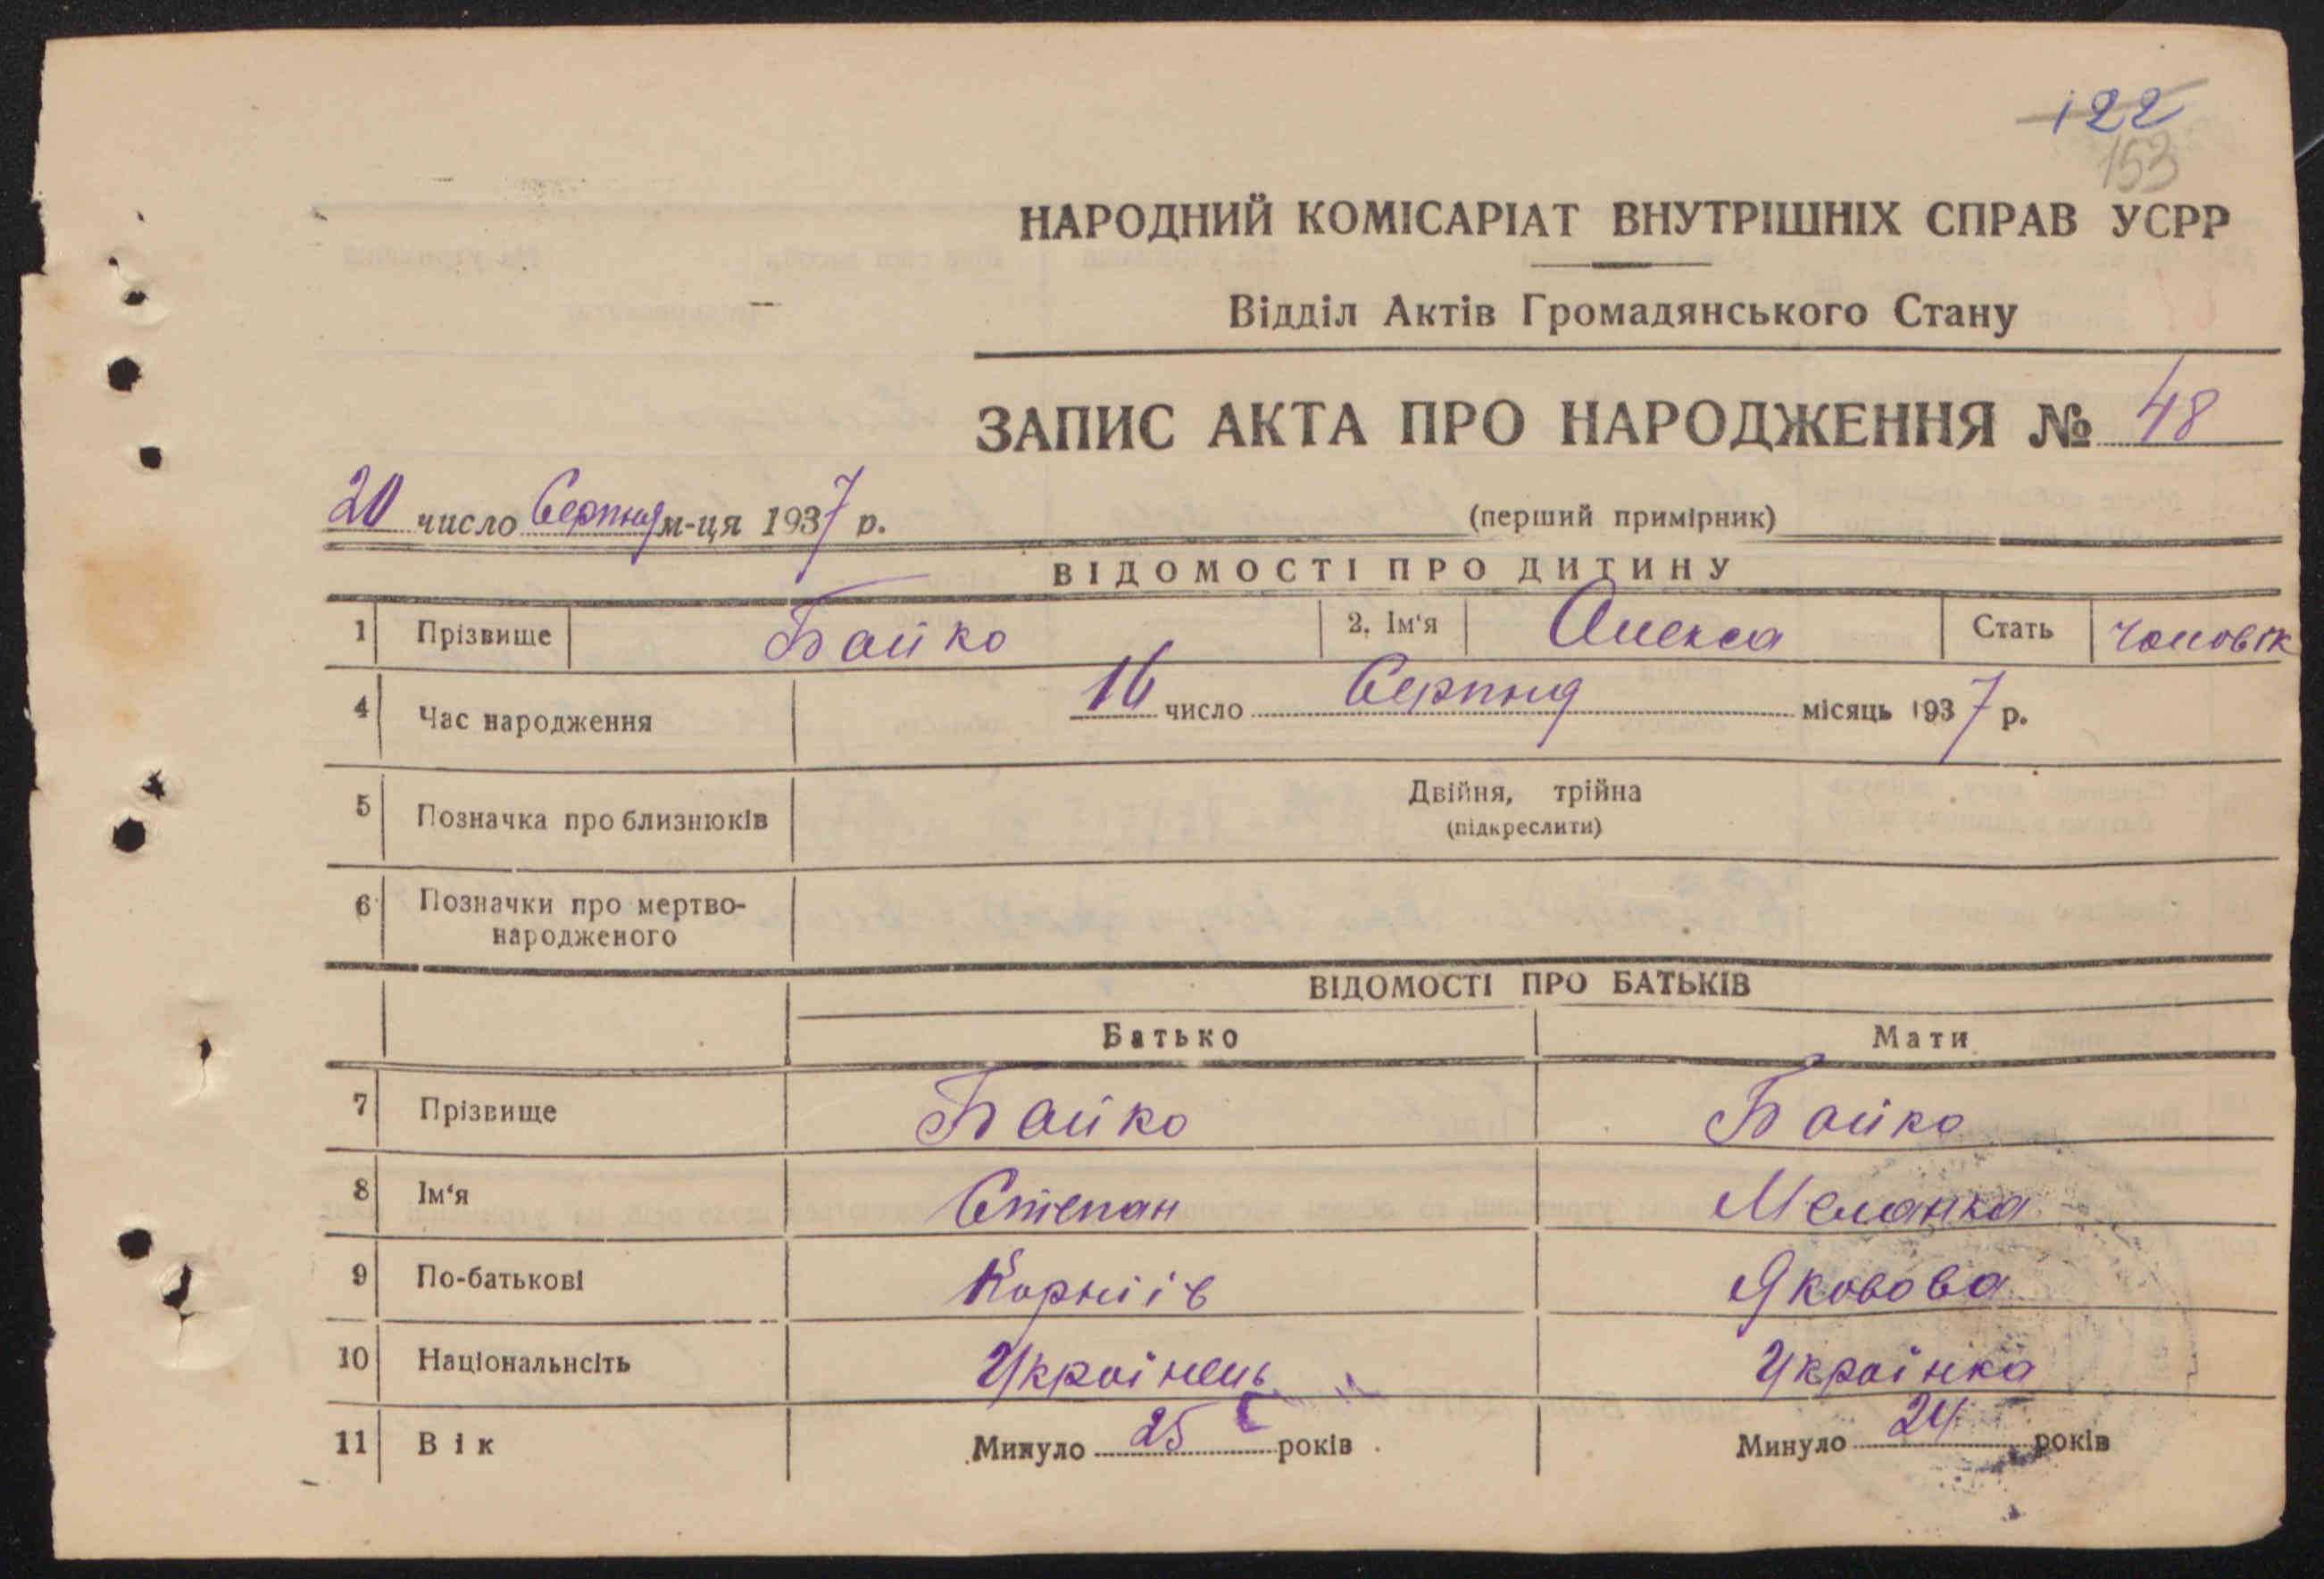 122
153
НАРОДНИЙ КОМІСАРІАТ ВНУТРІШНІХ СПРАВ УСРР
Відділ Актів Громадянського Стану
ЗАПИС АКТА ПРО НАРОДЖЕННЯ № 48
20 число Серпня м-ця 1937 р.
(перший примірник)
ВІДОМОСТІ ПРО ДИТИНУ
1 Прізвище Бойко 2. Ім'я Олекса Стать чоловік
4 Час народження 16 число Серпня місяць 1937 р.
5 Позначка про близнюків Двійня, трійна
(підкреслити)
6 Позначки про мертво-
народженого
ВІДОМОСТІ ПРО БАТЬКІВ
Батько Мати
7 Прізвище Бойко Бойко
8 Ім'я Степан Меланка
9 По-батькові Корніів Яковова
10 Національнсіть Українець Українка
11 Вік Минуло 25 років Минуло 24 років